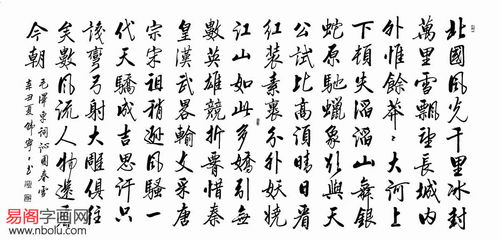 北國風光千里冰封
萬里雪飄望長城內
外惟餘莽々大河上
下頓失滔滔山舞銀
蛇原馳蠟象欲與天
公試比高須晴日看
紅裝素裹分外妖嬈
江山如此多嬌引無
數英雄競折腰惜秦
皇漢武略輸文采唐
宗宋祖稍遜風騷一
代天驕成吉思汗只
識彎弓射大雕俱往
矣數風流人物還看
今朝
毛澤東詞沁園春雪
辛丑夏
易阁字画网
www.nbolu.com